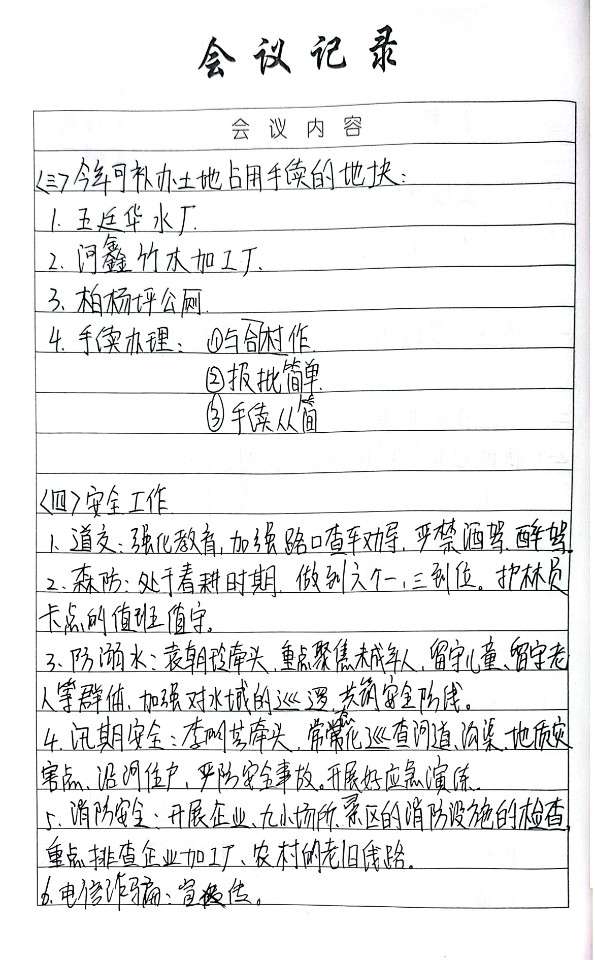 会议记录
会议内容
(三)今年可补办土地占用手续的地块：
1. 五廷华水厂.
2. 河鑫竹木加工厂.
3. 柏杨坪公厕.
4. 手续办理： ①与合村作.
②报批简单.
③手续从简
(四)安全工作.
1. 道交：强化教育,加强路口查车劝导,严禁酒驾.醉驾.
2. 森防：处于春耕时期. 做到六个一,三到位。护林员
卡点的值班值守。
3. 防溺水：袁朝玲牵头,重点聚焦未成年人,留守儿童、留守老
人等群体,加强对水域的巡逻,共筑安全防线。
4. 汛期安全：李明芸牵头,常常态化巡查河道、沟渠、地质灾
害点、沿河住户,严防安全事故。开展好应急演练.
5. 消防安全：开展企业、九小场所、景区的消防设施的检查,
重点排查企业加工厂、农村的老旧线路.
6. 电信诈骗：宣传。